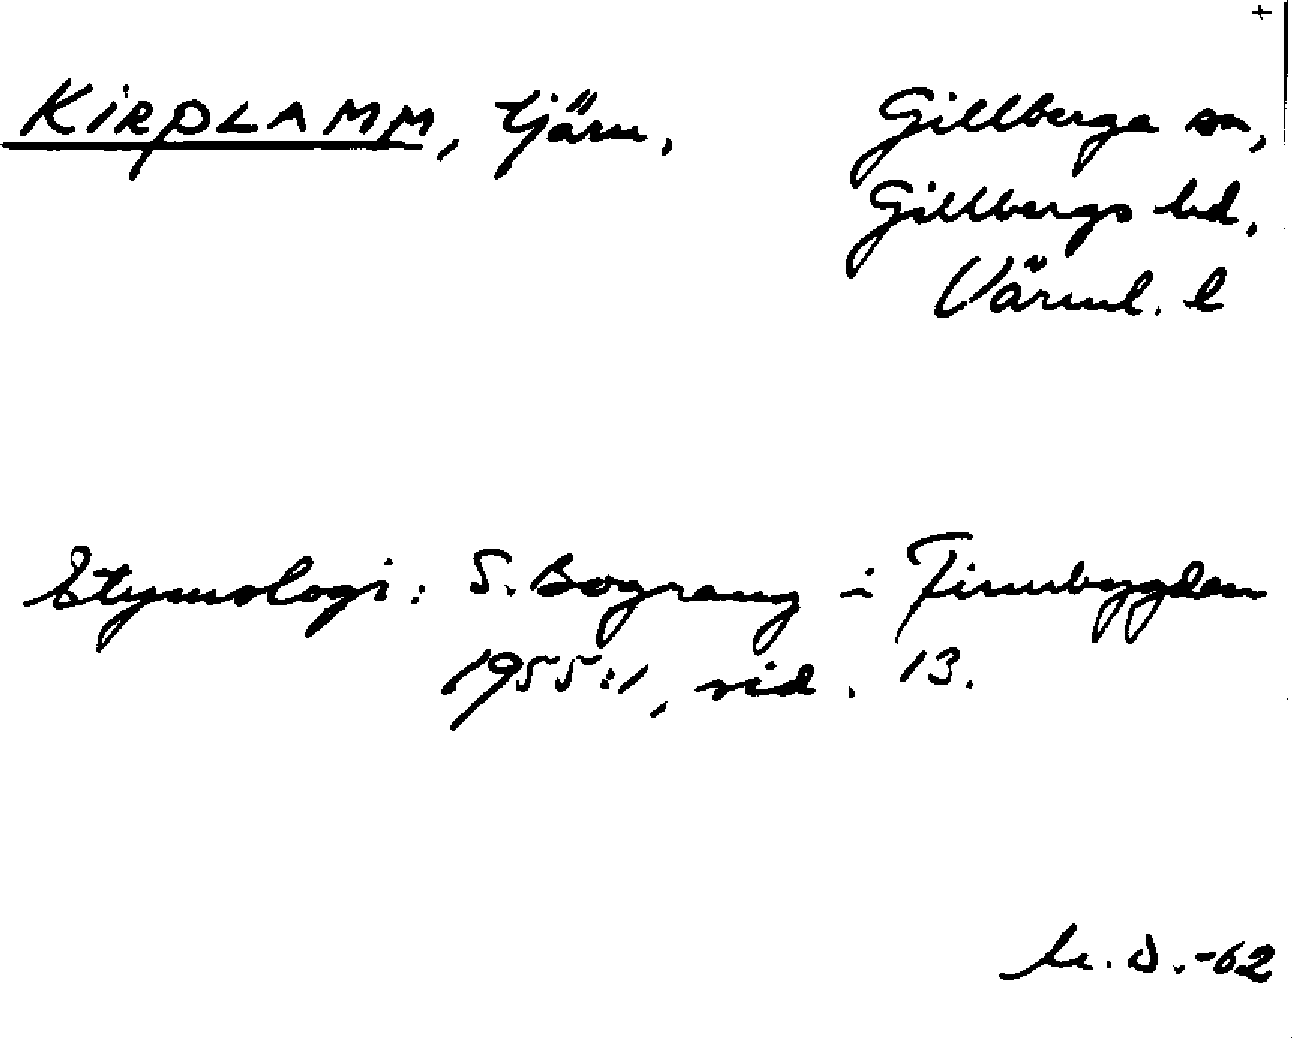 +
KIRPLAMM, tjärn, Gillberga sn,
Gillbergs hd.
Värml. l
Etymologi: S. Bograng i Finnbygden
1955:1, sid. 13.
D. -62